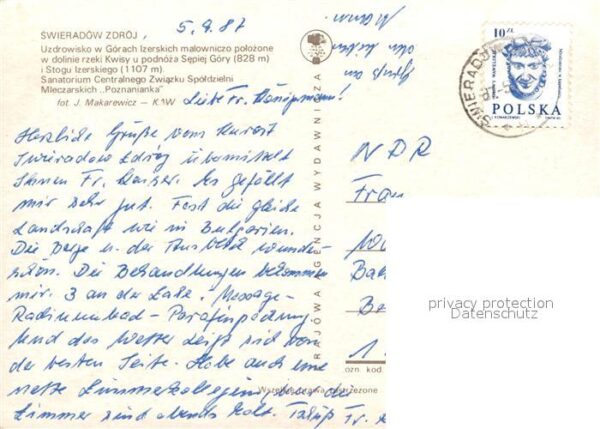 ŚWIERADÓW ZDRÓJ
Uzdrowisko w Górach Izerskich malowniczo położone
w dolinie rzeki Kwisy u podnóża Sępiej Góry (828 m)
i Stogu Izerskiego (1107 m)
Sanatorium Centralnego Związku Spółdzielni
Mleczarskich „Poznanianka"
fot. J. Makarewicz – KAW
5.9.87
Liebe Fr.
Herzliche Grüße vom Kurort
Swieradow Zdrój übermittelt
Ihnen Fr. Kaiser. Es gefällt
mir sehr gut. Fast die gleiche
Landschaft wie in Bulgarien.
Die Berge u. der Ausblick wunder-
schön. Die Behandlungen bekommen
mir. 3 an der Zahl, Massage-
Radiumbad- Parafinpackung
Und das Wetter zeigt sich von
der besten Seite. Habe auch eine
nette Zimmerkollegin, in der
Zimmer sind abends kalt.
KRAJOWA AGENCJA WYDAWNICZA
NDR
Frau
Ba
Be
1
ozn kod
Wszelkie prawa zastrzeżone
10 zł
POLSKA
ŚWIERADÓW
privacy protection
Datenschutz